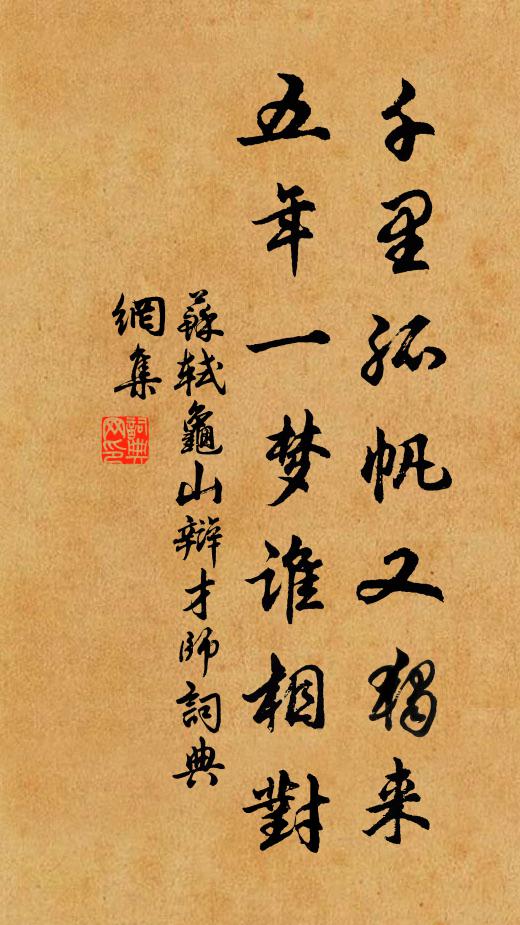 千里孤帆又独来
五年一梦谁相對
蘇軾龜山辯才師詞典
網集
詞典
网印